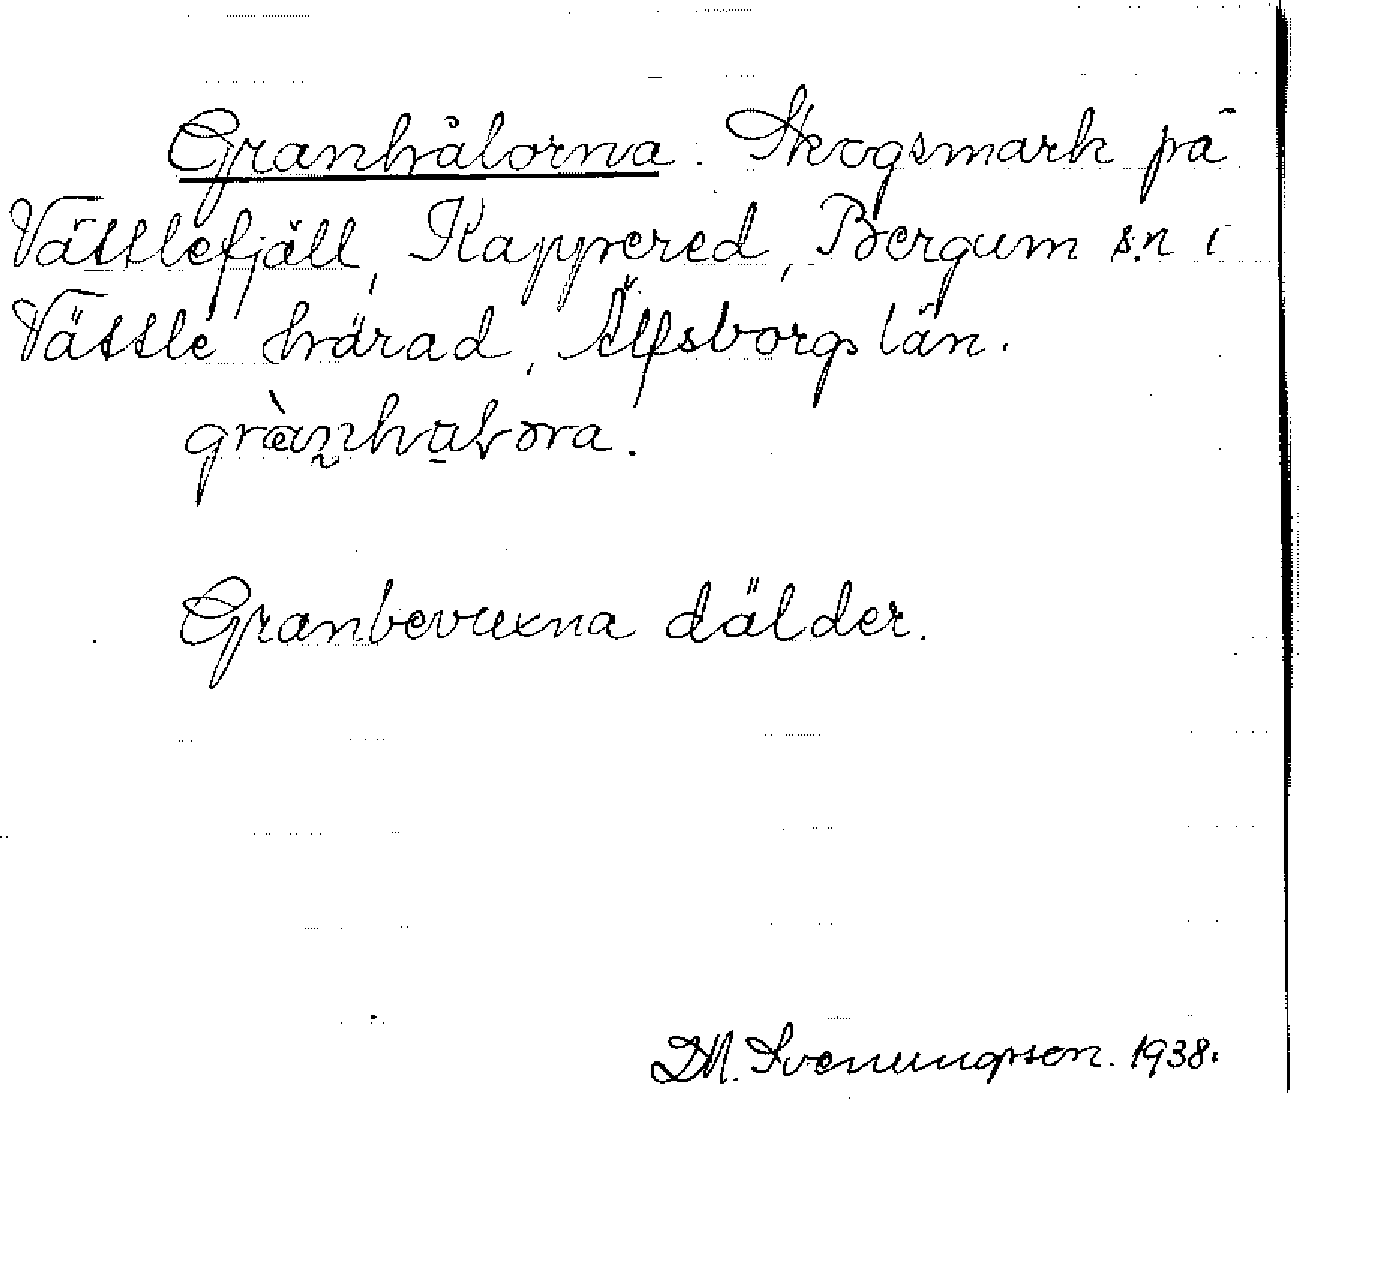 Granhålorna. Skogsmark på
Vättlefjäll, Kappered, Bergum s.n i
Vättle härad, Älfsborgs län.
Granbevuxna dälder.
D.M. Svenungsson. 1938.